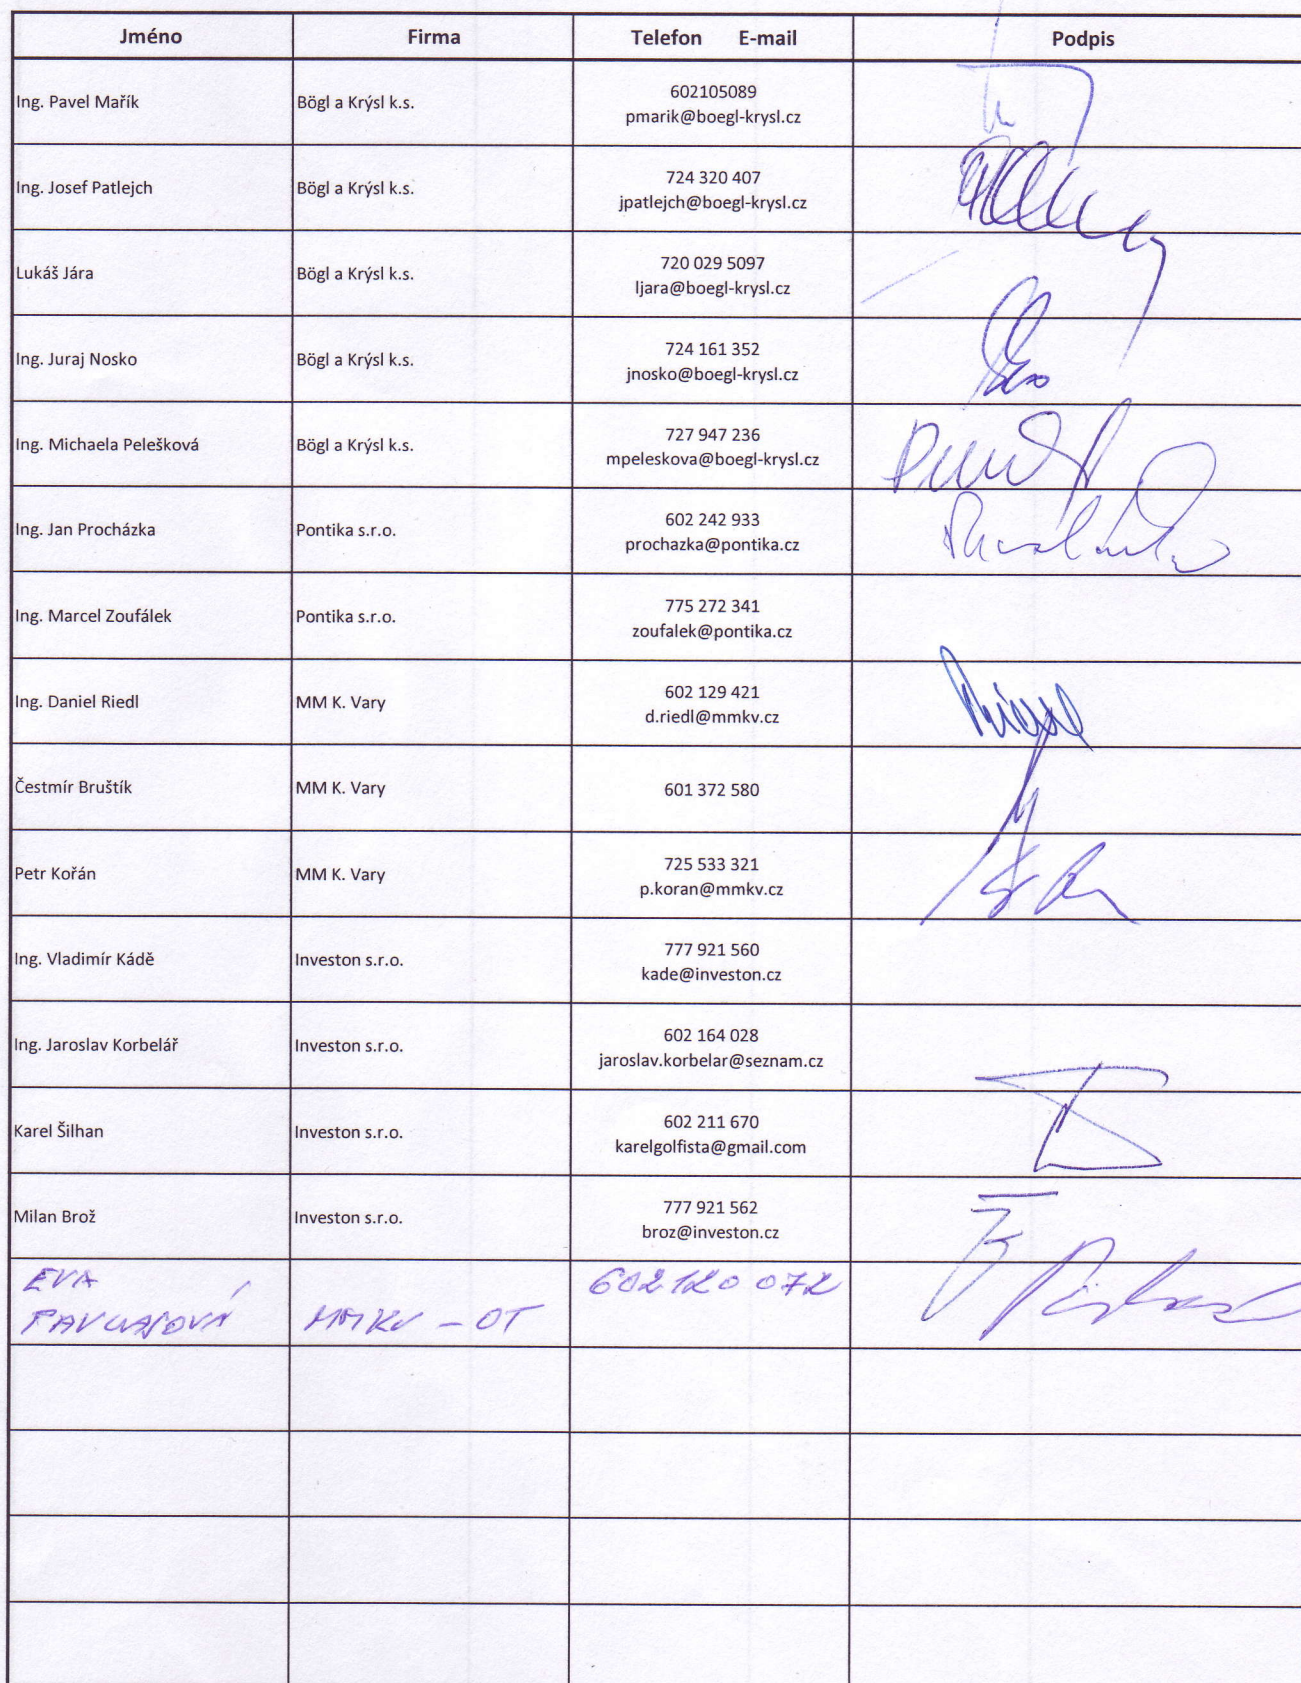 Jméno Firma Telefon E-mail Podpis
Ing. Pavel Mařík Bögl a Krýsl k.s. 602105089
pmarik@boegl-krysl.cz
Ing. Josef Patlejch Bögl a Krýsl k.s. 724 320 407
jpatlejch@boegl-krysl.cz
Lukáš Jára Bögl a Krýsl k.s. 720 029 5097
ljara@boegl-krysl.cz
Ing. Juraj Nosko Bögl a Krýsl k.s. 724 161 352
jnosko@boegl-krysl.cz
Ing. Michaela Pelešková Bögl a Krýsl k.s. 727 947 236
mpeleskova@boegl-krysl.cz
Ing. Jan Procházka Pontika s.r.o. 602 242 933
prochazka@pontika.cz
Ing. Marcel Zoufálek Pontika s.r.o. 775 272 341
zoufalek@pontika.cz
Ing. Daniel Riedl MM K. Vary 602 129 421
d.riedl@mmkv.cz
Čestmír Bruštík MM K. Vary 601 372 580
Petr Kořán MM K. Vary 725 533 321
p.koran@mmkv.cz
Ing. Vladimír Kádě Investon s.r.o. 777 921 560
kade@investon.cz
Ing. Jaroslav Korbelář Investon s.r.o. 602 164 028
jaroslav.korbelar@seznam.cz
Karel Šilhan Investon s.r.o. 602 211 670
karelgolfista@gmail.com
Milan Brož Investon s.r.o. 777 921 562
broz@investon.cz
EVA 602 120 072
MMKV - OT